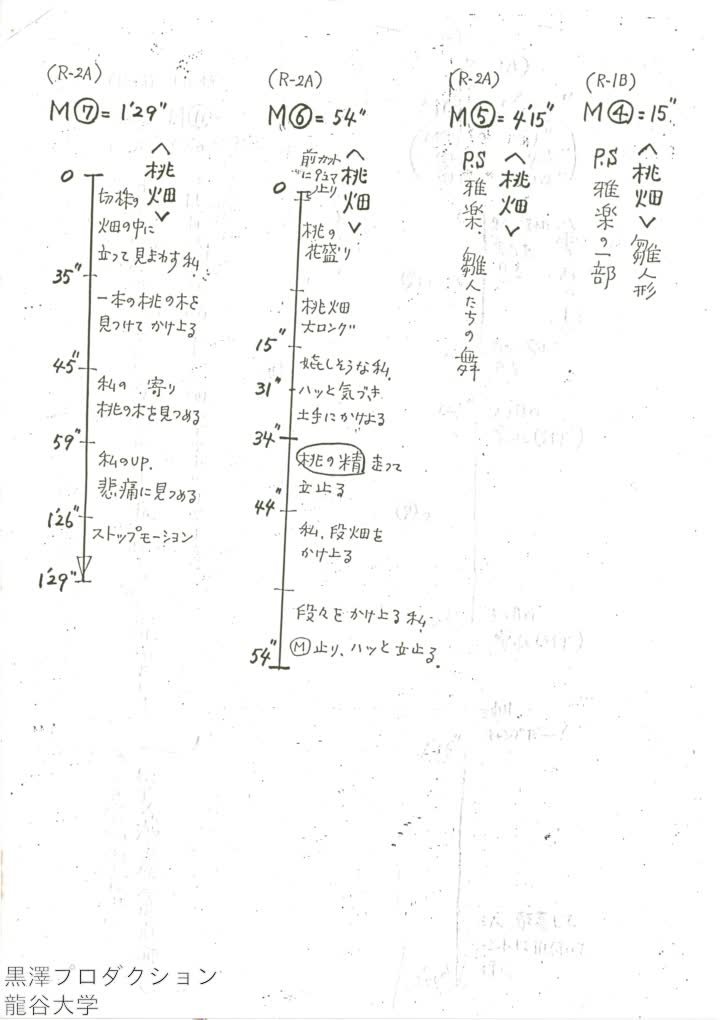 (R-1B)
M④=15"
<桃畑>雛人形
P.S 雅楽の一部
(R-2A)
M⑤=4'15"
<桃畑>
P.S 雅楽、雛人たちの舞
(R-2A)
M⑥=54"
<桃畑>
前カット
止り
0
桃の
花盛り
桃畑
大ロング
15"
嬉しそうな私、
31"
ハッと気づき
土手にかけよる
34"
桃の精 走って
立止る
44"
私、段畑を
かけ上る
段々をかけ上る私、
Ⓜ止り、ハッと立止る。
54"
(R-2A)
M⑦=1'29"
<桃畑>
0
切株の
畑の中に
立って見まわす私
35"
一本の桃の木を
見つけてかけ上る
45"
私の 寄り
桃の木を見つめる
59"
私のUP.
悲痛に見つめる
1'26"
ストップモーション
1'29"
黒澤プロダクション
龍谷大学